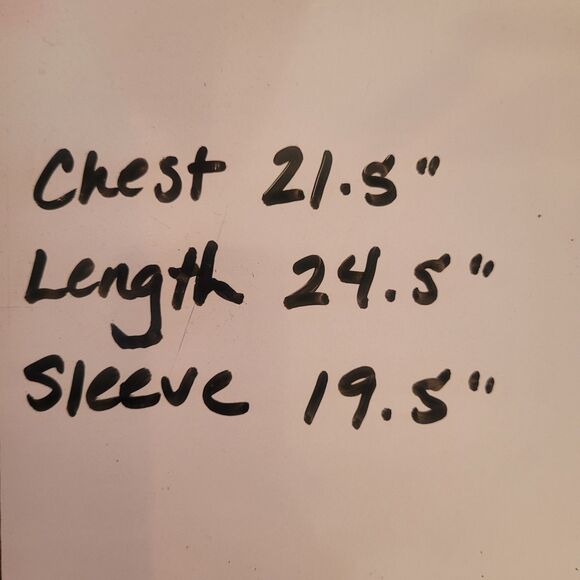 Chest 21.5"
Length 24.5"
Sleeve 19.5"